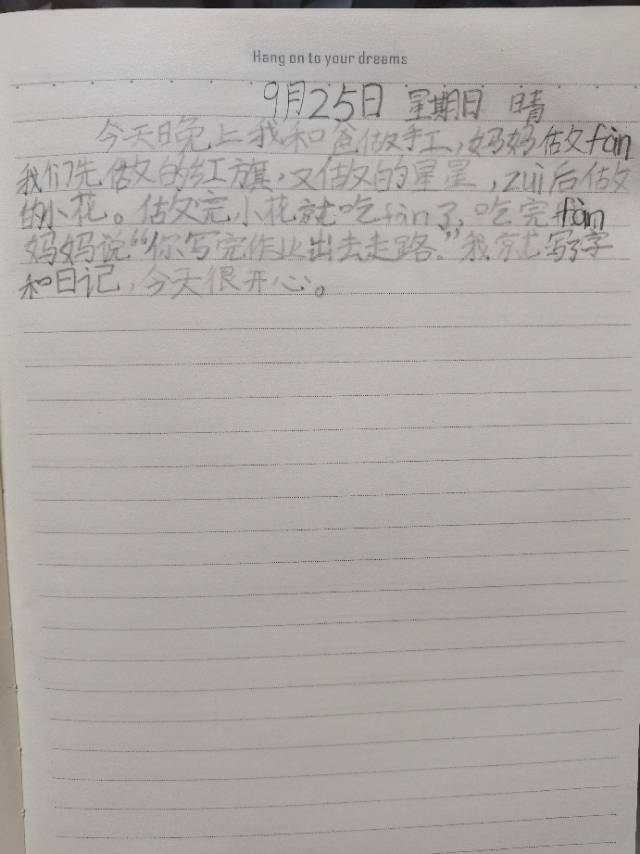 Hang on to your dreams
9月25日 星期日 晴
今天晚上我和爸做手工,妈妈做fàn
我们先做的红旗,又做的星星,zuì后做
的小花。做完小花就吃fàn了,吃完fàn
妈妈说“你写完作业出去走路.”我就写字
和日记,今天很开心。